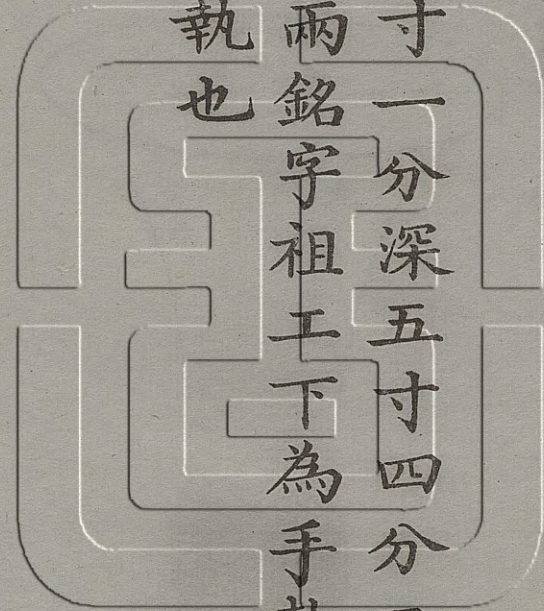 寸一分深五寸四分
兩銘字祖工下為手
執也